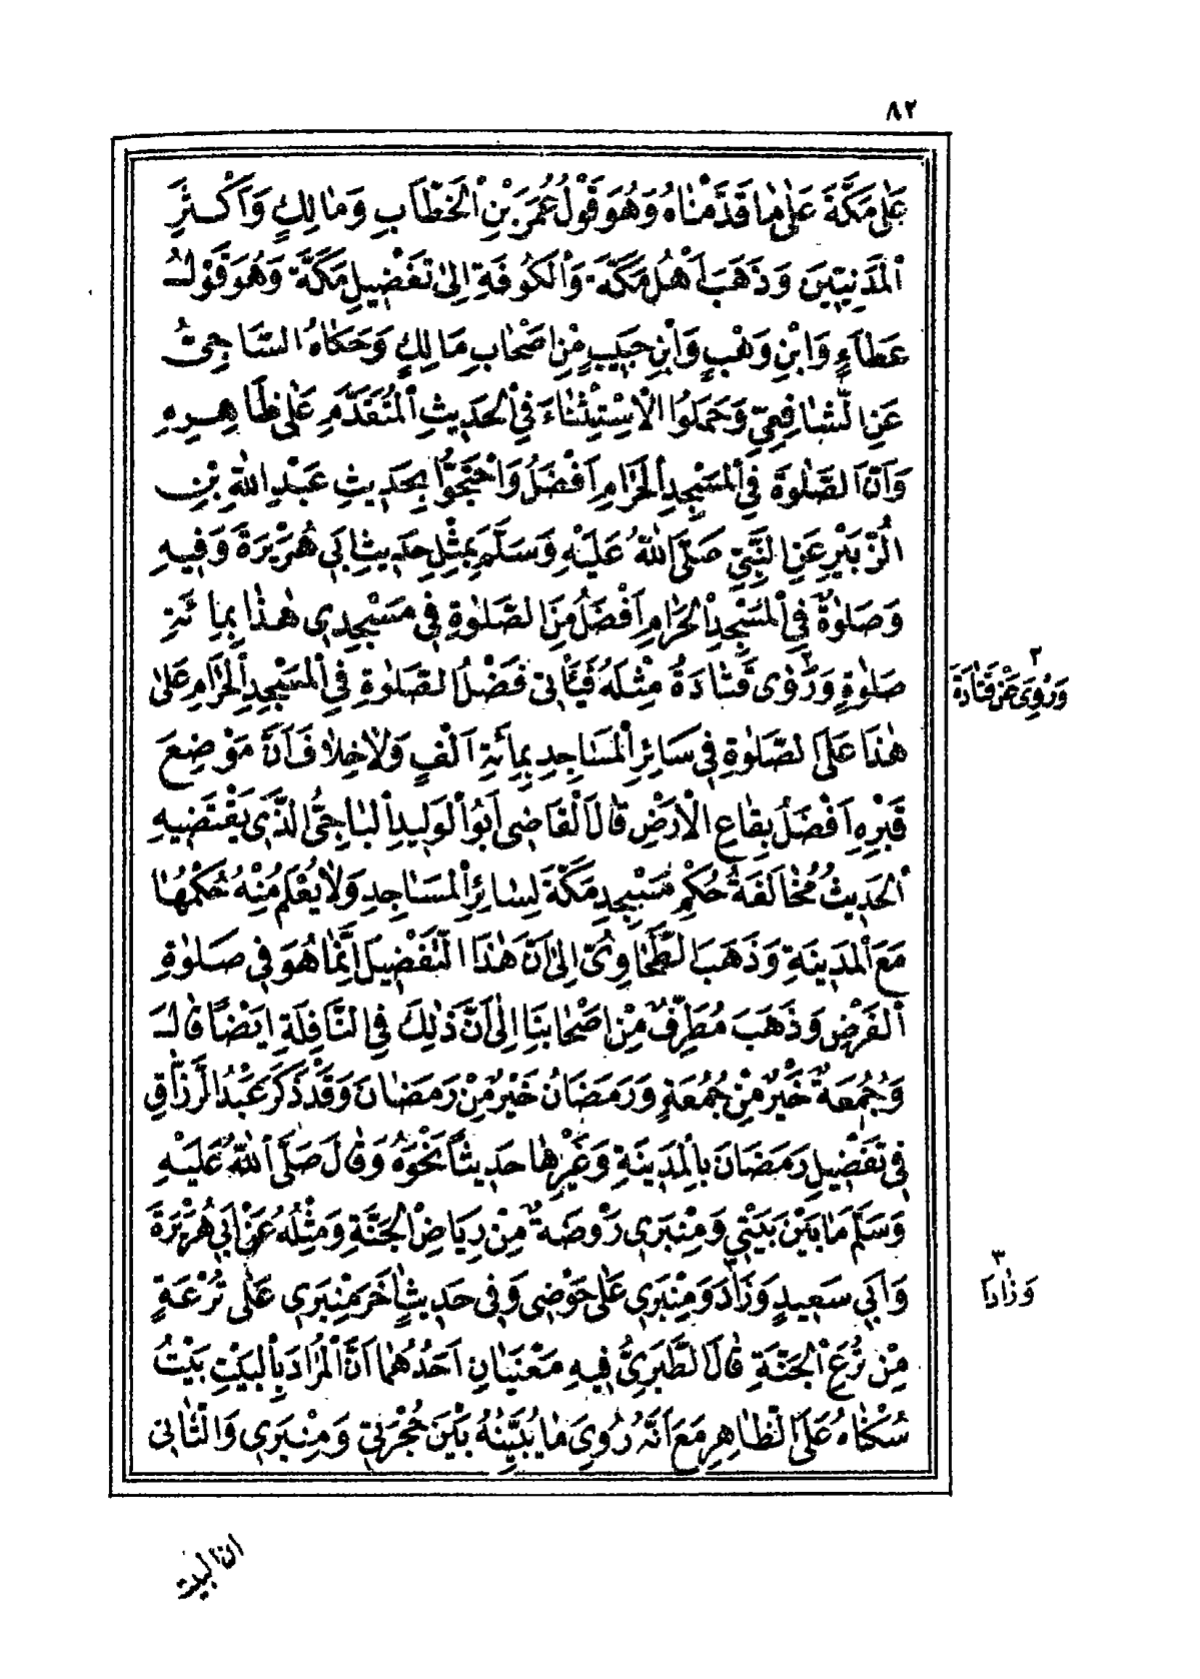 ٨٢
عَلٰى مَكَّةَ عَلٰى مَا قَدَّمْنَاهُ وَهُوَ قَوْلُ عُمَرَ بْنِ الْخَطَّابِ وَمَالِكٍ وَاَكْثَرِ
الْمَدَنِيّينَ وَذَهَبَ اَهْلُ مَكَّةَ وَالْكُوفَةِ اِلٰى تَفْضِيلِ مَكَّةَ وَهُوَ قَوْلُ
عَطَاءٍ وَابْنِ وَهْبٍ وَابْنِ حَبِيبٍ مِنْ اَصْحَابِ مَالِكٍ وَحَكَاهُ السَّاجِىُّ
عَنِ الشَّافِعِىِّ وَحَمَلُوا الْاِسْتِثْنَاءَ فِى الْحَدِيثِ الْمُتَقَدَّمِ عَلٰى ظَاهِرِهِ
وَاَنَّ الصَّلٰوةَ فِى الْمَسْجِدِ الْحَرَامِ اَفْضَلُ وَاحْتَجُّوا بِحَدِيثِ عَبْدِ اللّٰهِ بْنِ
الزُّبَيْرِ عَنِ النَّبِيِّ صَلَّى اللّٰهُ عَلَيْهِ وَسَلَّمَ بِمِثْلِ حَدِيثِ اَبِى هُرَيْرَةَ وَفِيهِ
وَصَلٰوةٌ فِى الْمَسْجِدِ الْحَرَامِ اَفْضَلُ مِنَ الصَّلٰوةِ فِى مَسْجِدِى هٰذَا بِمِائَةِ
صَلٰوةٍ وَرَوٰى قَتَادَةُ مِثْلَهُ فَيَأْتِى فَضْلُ الصَّلٰوةِ فِى الْمَسْجِدِ الْحَرَامِ عَلٰى
٢
وَرُوِىَ عَنْ قَتَادَةَ
هٰذَا عَلَى الصَّلٰوةِ فِى سَائِرِ الْمَسَاجِدِ بِمِائَةِ اَلْفٍ وَلَا خِلَافَ اَنَّ مَوْضِعَ
قَبْرِهِ اَفْضَلُ بِقَاعِ الْاَرْضِ قَالَ الْقَاضِى اَبُو الْوَلِيدِ الْبَاجِىُّ الَّذِى يَقْتَضِيهِ
الْحَدِيثُ مُخَالَفَةُ حُكْمِ مَسْجِدِ مَكَّةَ لِسَائِرِ الْمَسَاجِدِ وَلَا يُعْلَمُ مِنْهُ حُكْمُهَا
مَعَ الْمَدِينَةِ وَذَهَبَ الطَّحَاوِىُّ اِلٰى اَنَّ هٰذَا التَّفْضِيلَ اِنَّمَا هُوَ فِى صَلٰوةِ
الْفَرْضِ وَذَهَبَ مُطَرِّفٌ مِنْ اَصْحَابِنَا اِلٰى اَنَّ ذٰلِكَ فِى النَّافِلَةِ اَيْضًا قَالَ
وَجُمُعَةٌ خَيْرٌ مِنْ جُمُعَةٍ وَرَمَضَانُ خَيْرٌ مِنْ رَمَضَانَ وَقَدْ ذَكَرَ عَبْدُ الرَّزَّاقِ
فِى تَفْضِيلِ رَمَضَانَ بِالْمَدِينَةِ وَغَيْرِهَا حَدِيثًا نَحْوَهُ وَقَالَ صَلَّى اللّٰهُ عَلَيْهِ
وَسَلَّمَ مَا بَيْنَ بَيْتِى وَمِنْبَرِى رَوْضَةٌ مِنْ رِيَاضِ الْجَنَّةِ وَمِثْلُهُ عَنْ اَبِى هُرَيْرَةَ
وَاَبِى سَعِيدٍ وَزَادَ وَمِنْبَرِى عَلٰى حَوْضِى وَفِى حَدِيثٍ اٰخَرَ مِنْبَرِى عَلٰى تُرْعَةٍ
٣
وَزَادَا
مِنْ تُرَعِ الْجَنَّةِ قَالَ الطَّبَرِىُّ فِيهِ مَعْنَيَانِ اَحَدُهُمَا اَنَّ الْمُرَادَ بِالْبَيْتِ بَيْتُ
سُكْنَاهُ عَلَى الظَّاهِرِ مَعَ اَنَّهُ رُوِىَ مَا يُبَيِّنُهُ بَيْنَ حُجْرَتِى وَمِنْبَرِى وَالثَّانِى
ان البيت